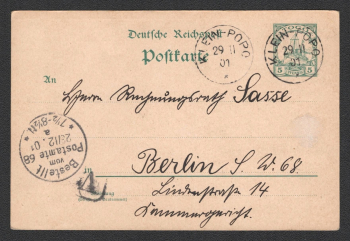 Deutsche Reichspost
Postkarte
KLEIN-POPO
29 11
01
TOGO
5 5
KLEIN-POPO
29 11
01
An
Herrn Rechnungsrath Sasse
Bestellt
vom
Postamte 68
23/12.01
a
7½-8½N
in
Berlin S.W. 68
Lindenstraße 14
Kammergericht.